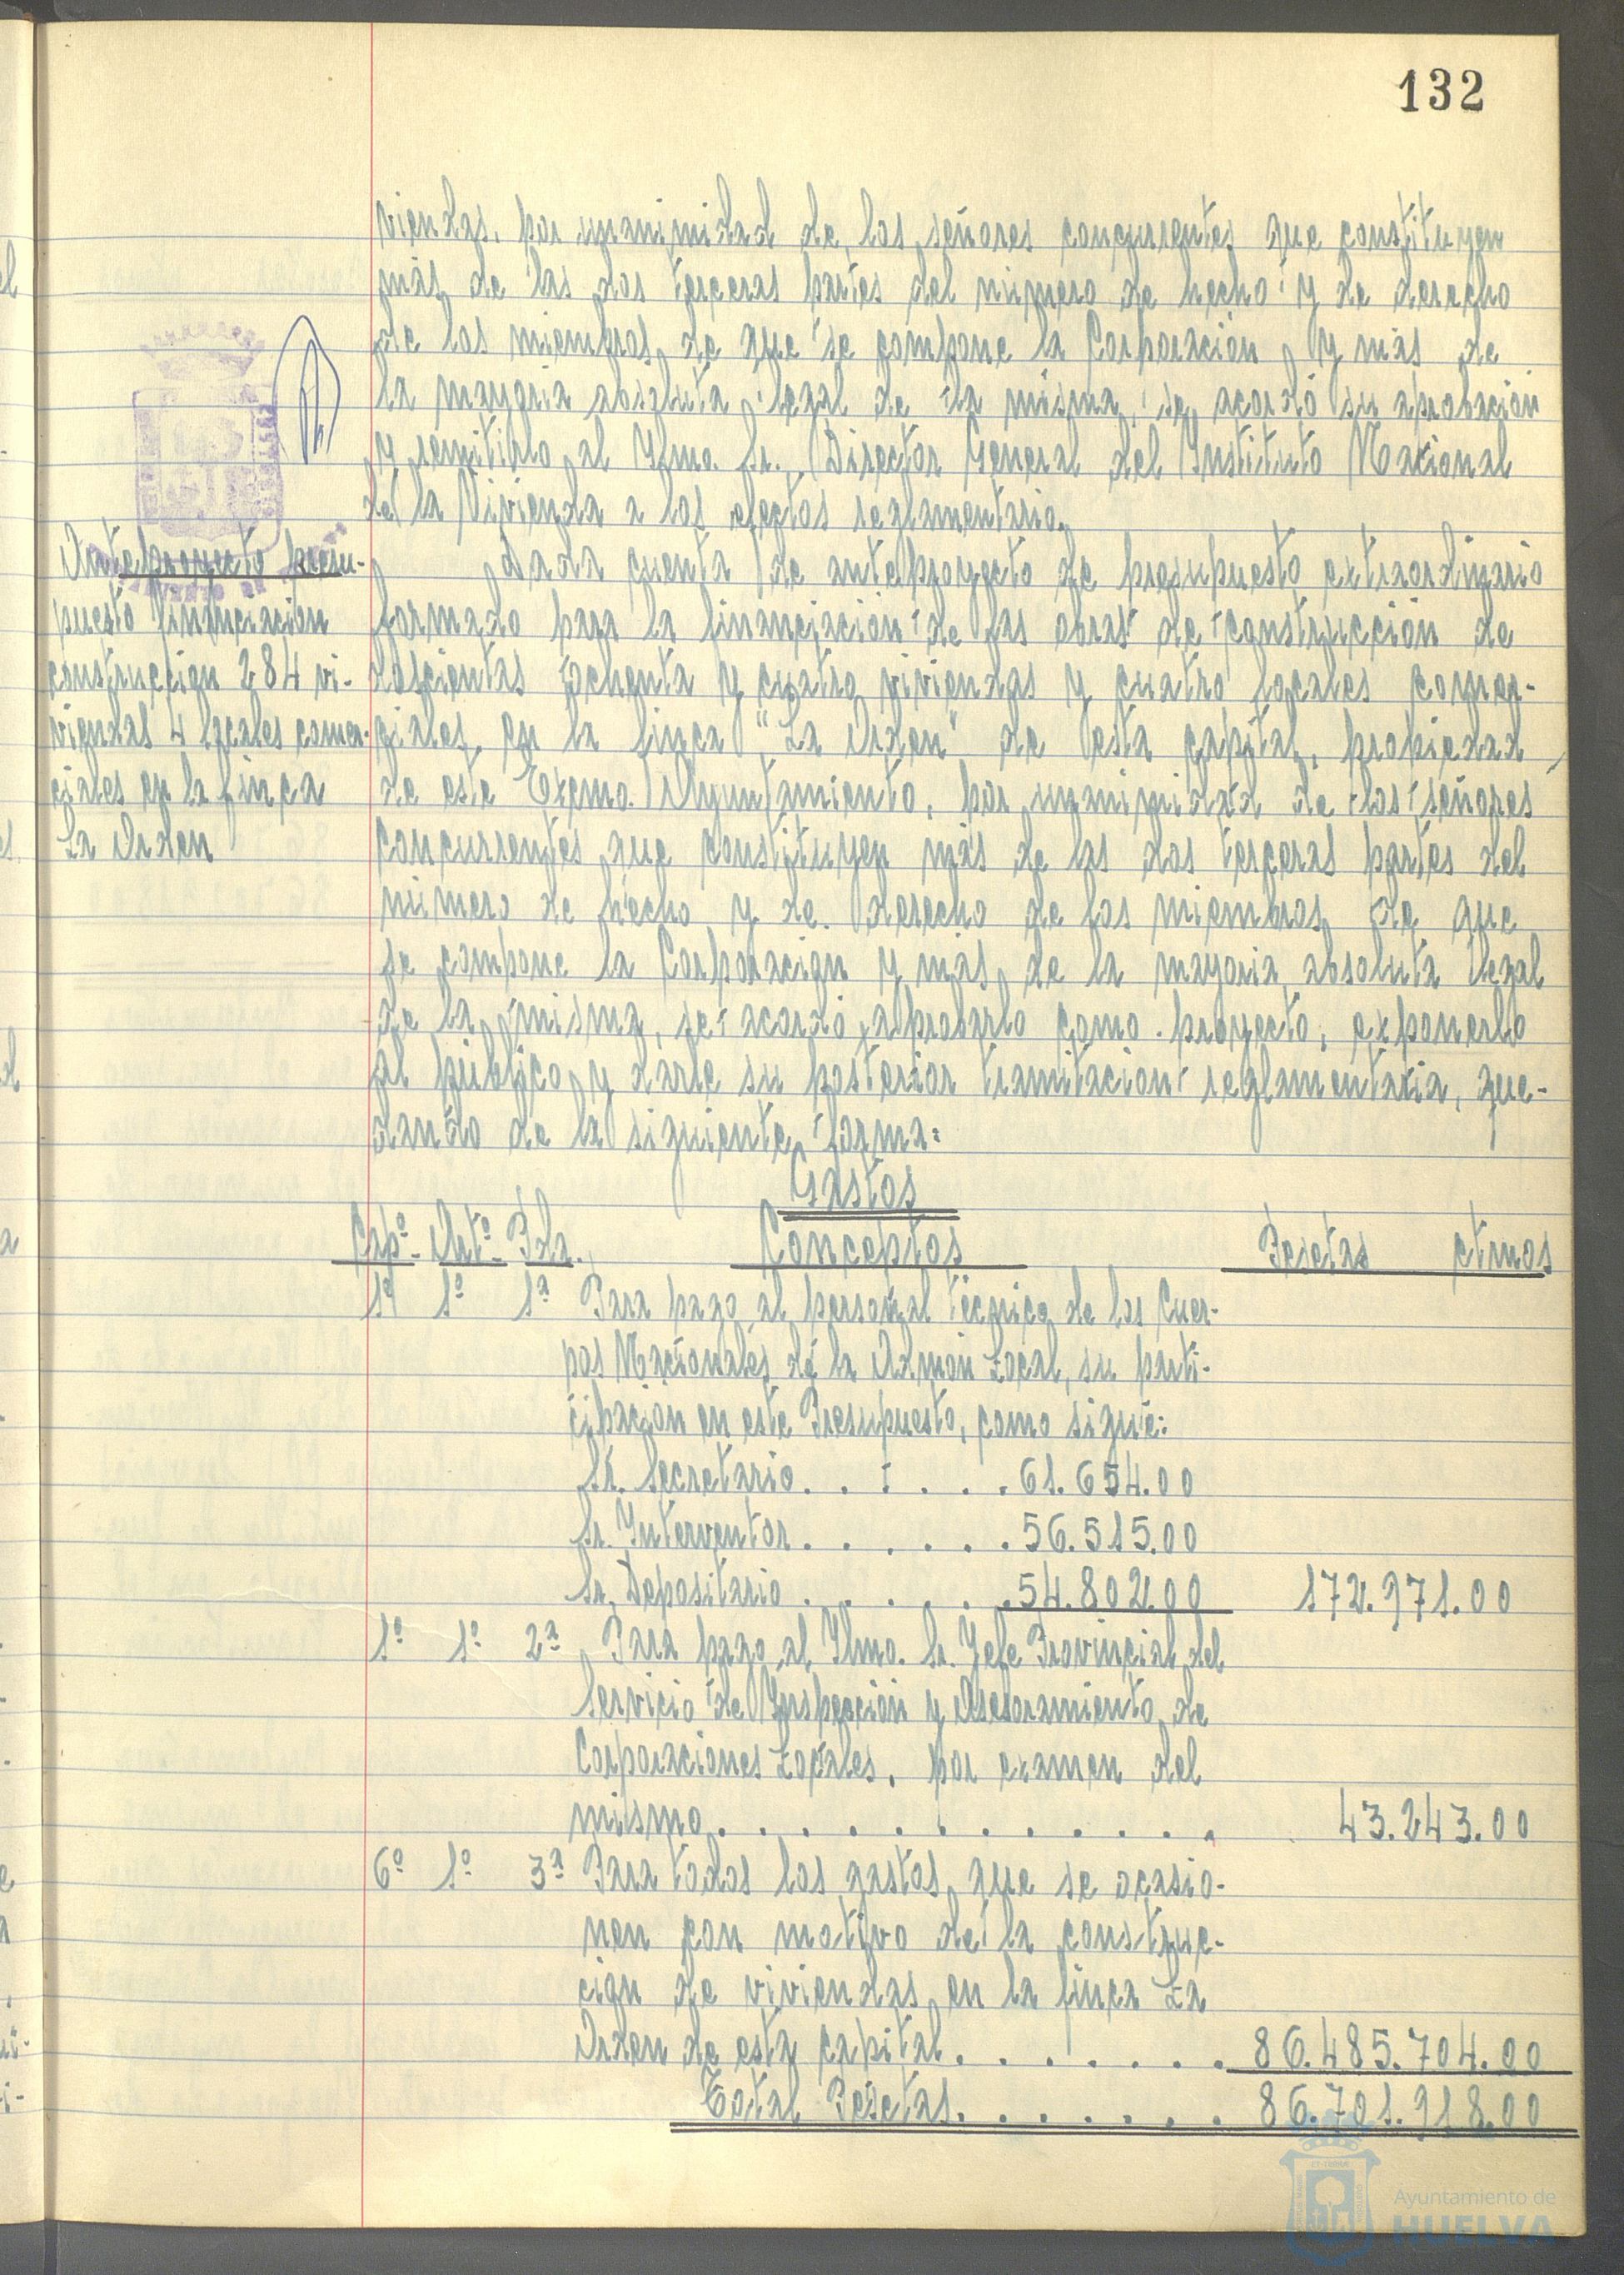 132
viendas, por unanimidad de los señores concurrentes que constituyen
más de las dos terceras partes del número de hecho y de derecho
de los miembros de que se compone la Corporación y más de
la mayoria absoluta legal de la misma, se acordó su aprobación
y remitirlo al Ylmo. Sr. Director General del Ynstituto Nacional
de la Vivienda a los efectos reglamentario.
Anteproyecto presu-
puesto financiación
construcción 284 vi-
viendas 4 locales comer-
ciales en la finca
La Orden
Dada cuenta de anteproyecto de presupuesto extraordinario
formado para la financiación de las obras de construcción de
doscientas ochenta y cuatro viviendas y cuatro locales comer-
ciales, en la finca "La Orden" de esta capital, propiedad
de este Excmo. Ayuntamiento, por unanimidad de los señores
concurrentes que constituyen más de las dos terceras partes del
número de hecho y de derecho de los miembros de que
se compone la Corporación y más de la mayoria absoluta legal
de la misma, se acordó aprobarlo como proyecto, exponerlo
al público y darle su posterior tramitación reglamentaria, que-
dando de la siguiente forma:
Gastos
Capº. Artº. Pda. Conceptos Pesetas ctmos
1º 1º 1ª Para pago al personal técnico de los Cuer-
pos Nacionales de la Admón Local, su parti-
cipación en este Presupuesto, como sigue:
Sr. Secretario. . . . . . 61.654.00
Sr. Interventor. . . . . . 56.515.00
Sr. Depositario . . . . . 54.802.00 172.971.00
1º 1º 2ª Para pago al Ylmo. Sr. Jefe Provincial del
Servicio de Ynspección y Asesoramiento de
Corporaciones Locales, por examen del
mismo. . . . . . . . . . . . 43.243.00
6º 1º 3ª Para todos los gastos que se ocasio-
nen con motivo de la construc-
ción de viviendas en la finca La
Orden de esta capital. . . . . . . 86.485.704.00
Total Pesetas. . . . . . . 86.701.918.00
Ayuntamiento de
HUELVA